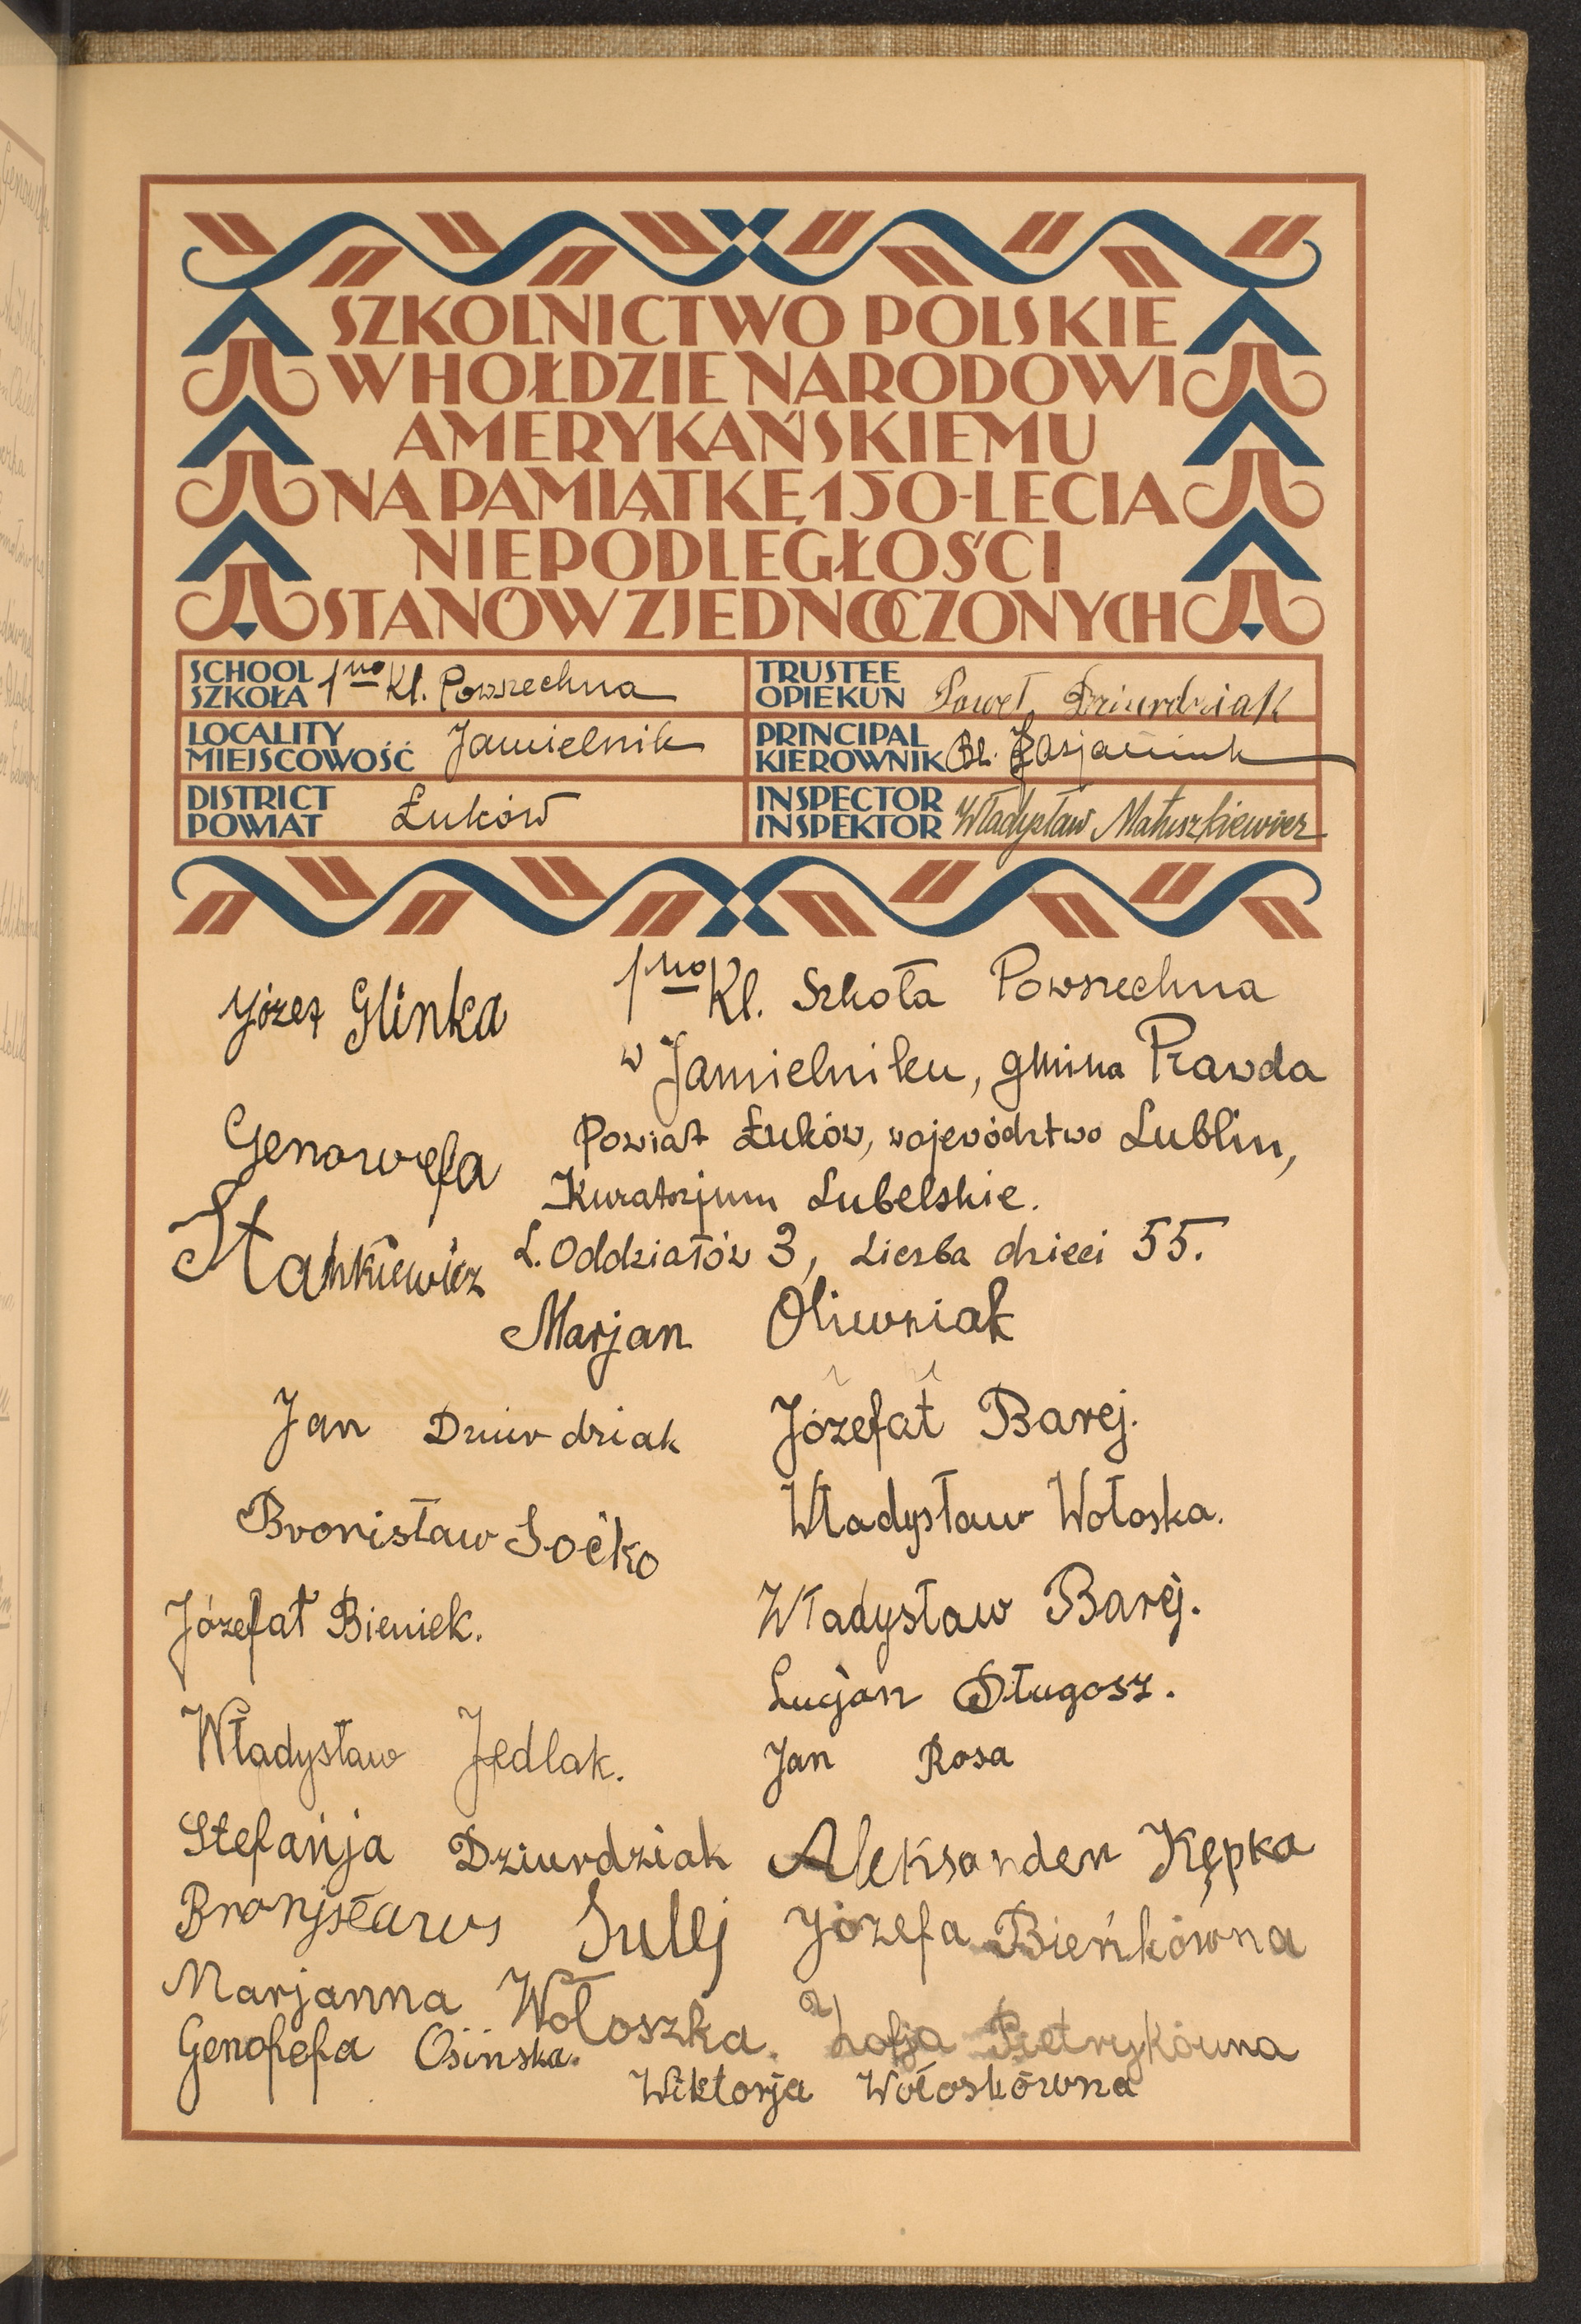 SZKOLNICTWO POLSKIE
W HOŁDZIE NARODOWI
AMERYKAŃSKIEMU
NA PAMIĄTKĘ 150-LECIA
NIEPODLEGŁOŚCI
STANÓW ZJEDNOCZONYCH
SCHOOL
SZKOŁA 1no Kl. Powszechna
LOCALITY
MIEJSCOWOŚĆ Jamielnik
DISTRICT
POWIAT Łuków
TRUSTEE
OPIEKUN Paweł Dziurdziak
PRINCIPAL
KIEROWNIK Bl.
INSPECTOR
INSPEKTOR Władysław Matuszkiewicz
1no Kl. Szkoła Powszechna
w Jamielniku, gmina Prawda
Powiat Łuków, województwo Lublin,
Kuratorjum Lubelskie.
L. Oddziałów 3, Liczba dzieci 55.
Józef Glinka
Genowefa
Stankiewicz
Marjan Oliwniak
Jan Dziurdziak
Józefat Barej.
Bronisław Soćko
Władysław Wołoska.
Józefat Bieniek.
Władysław Barej.
Lucjan Długosz.
Władysław Jedlak.
Jan Rosa
Stefanja Dziurdziak
Aleksander Kępka
Bronjsław Sulej
Józefa Bieńkówna
Marjanna Wołoszka.
Zofja Pietrykówna
Genofefa Osińska.
Wiktorja Wołoskówna